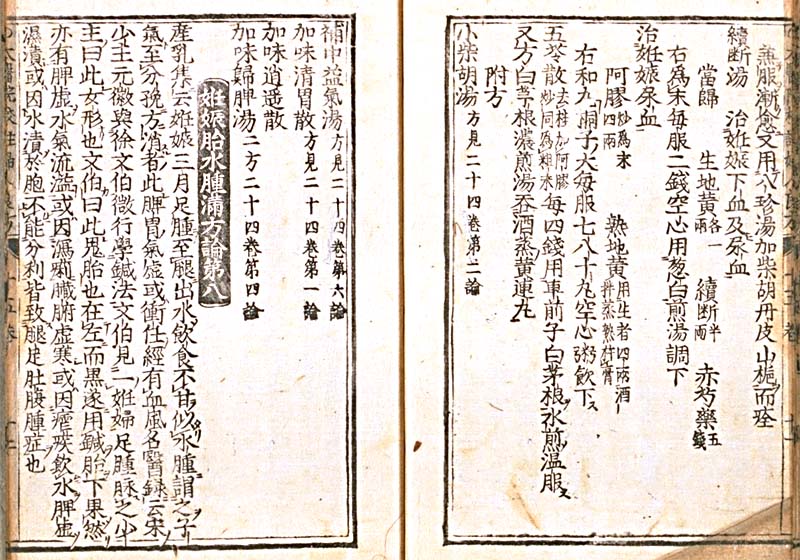 兼服漸愈又用八珍湯加柴胡丹皮山梔而痊
續斷湯　治姙娠下血及尿血
當歸　生地黃各一兩　續斷半兩　赤芍藥五錢
右為末每服二錢空心用葱白煎湯調下
治姙娠尿血
阿膠炒為末四兩　熟地黃用生者四兩酒拌蒸熟杵膏
右和丸桐子大每服七八十丸空心粥飲下
五苓散去桂加阿膠炒同為粗末每四錢用車前子白茅根水煎温服
又方白茅根濃煎湯吞酒蒸黃連丸
附方
小柴胡湯方見二十四卷第二論
補中益氣湯方見二十四卷第六論
加味清胃散方見二十四卷第一論
加味逍遥散
加味歸脾湯二方二十四卷第四論
姙娠胎水腫滿方論第八
產乳集云姙娠三月足腫至腿出水飲食不甘似水腫謂之子
氣至分娩方消者此脾胃氣虛或衝任經有血風名醫錄云宋
少主元徽與徐文伯微行學鍼法文伯見一姙婦足腫脉之少
主曰此女形也文伯曰此鬼胎也在左而黑遂用鍼胎下果然
亦有脾虛水氣流溢或因瀉痢臟腑虛寒或因瘧疾飲水脾虛
濕漬或因水漬於胞不能分利皆致腿足肚腹腫症也